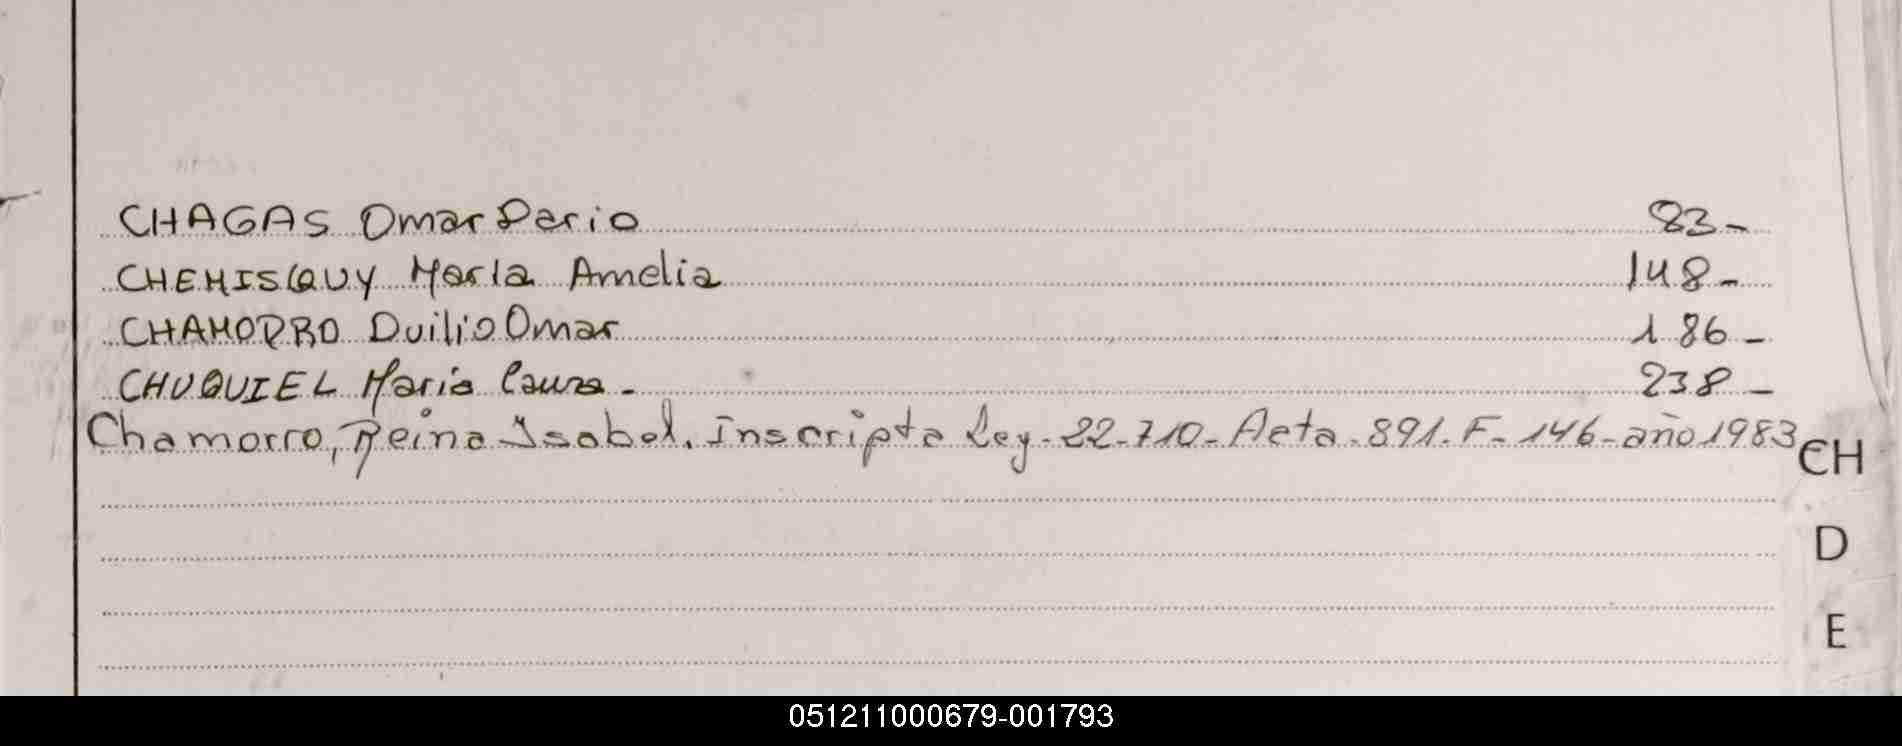 CHAGAS Omar Dario 83-
CHEMISQUY Maria Amelia 148-
CHAMORRO Duilio Omar 186-
CHUQUIEL Maria Laura - 238-
Chamorro, Reina Isabel. Inscripta Ley-22-710-Acta-891-F-146-año 1983
CH
D
E
051211000679-001793